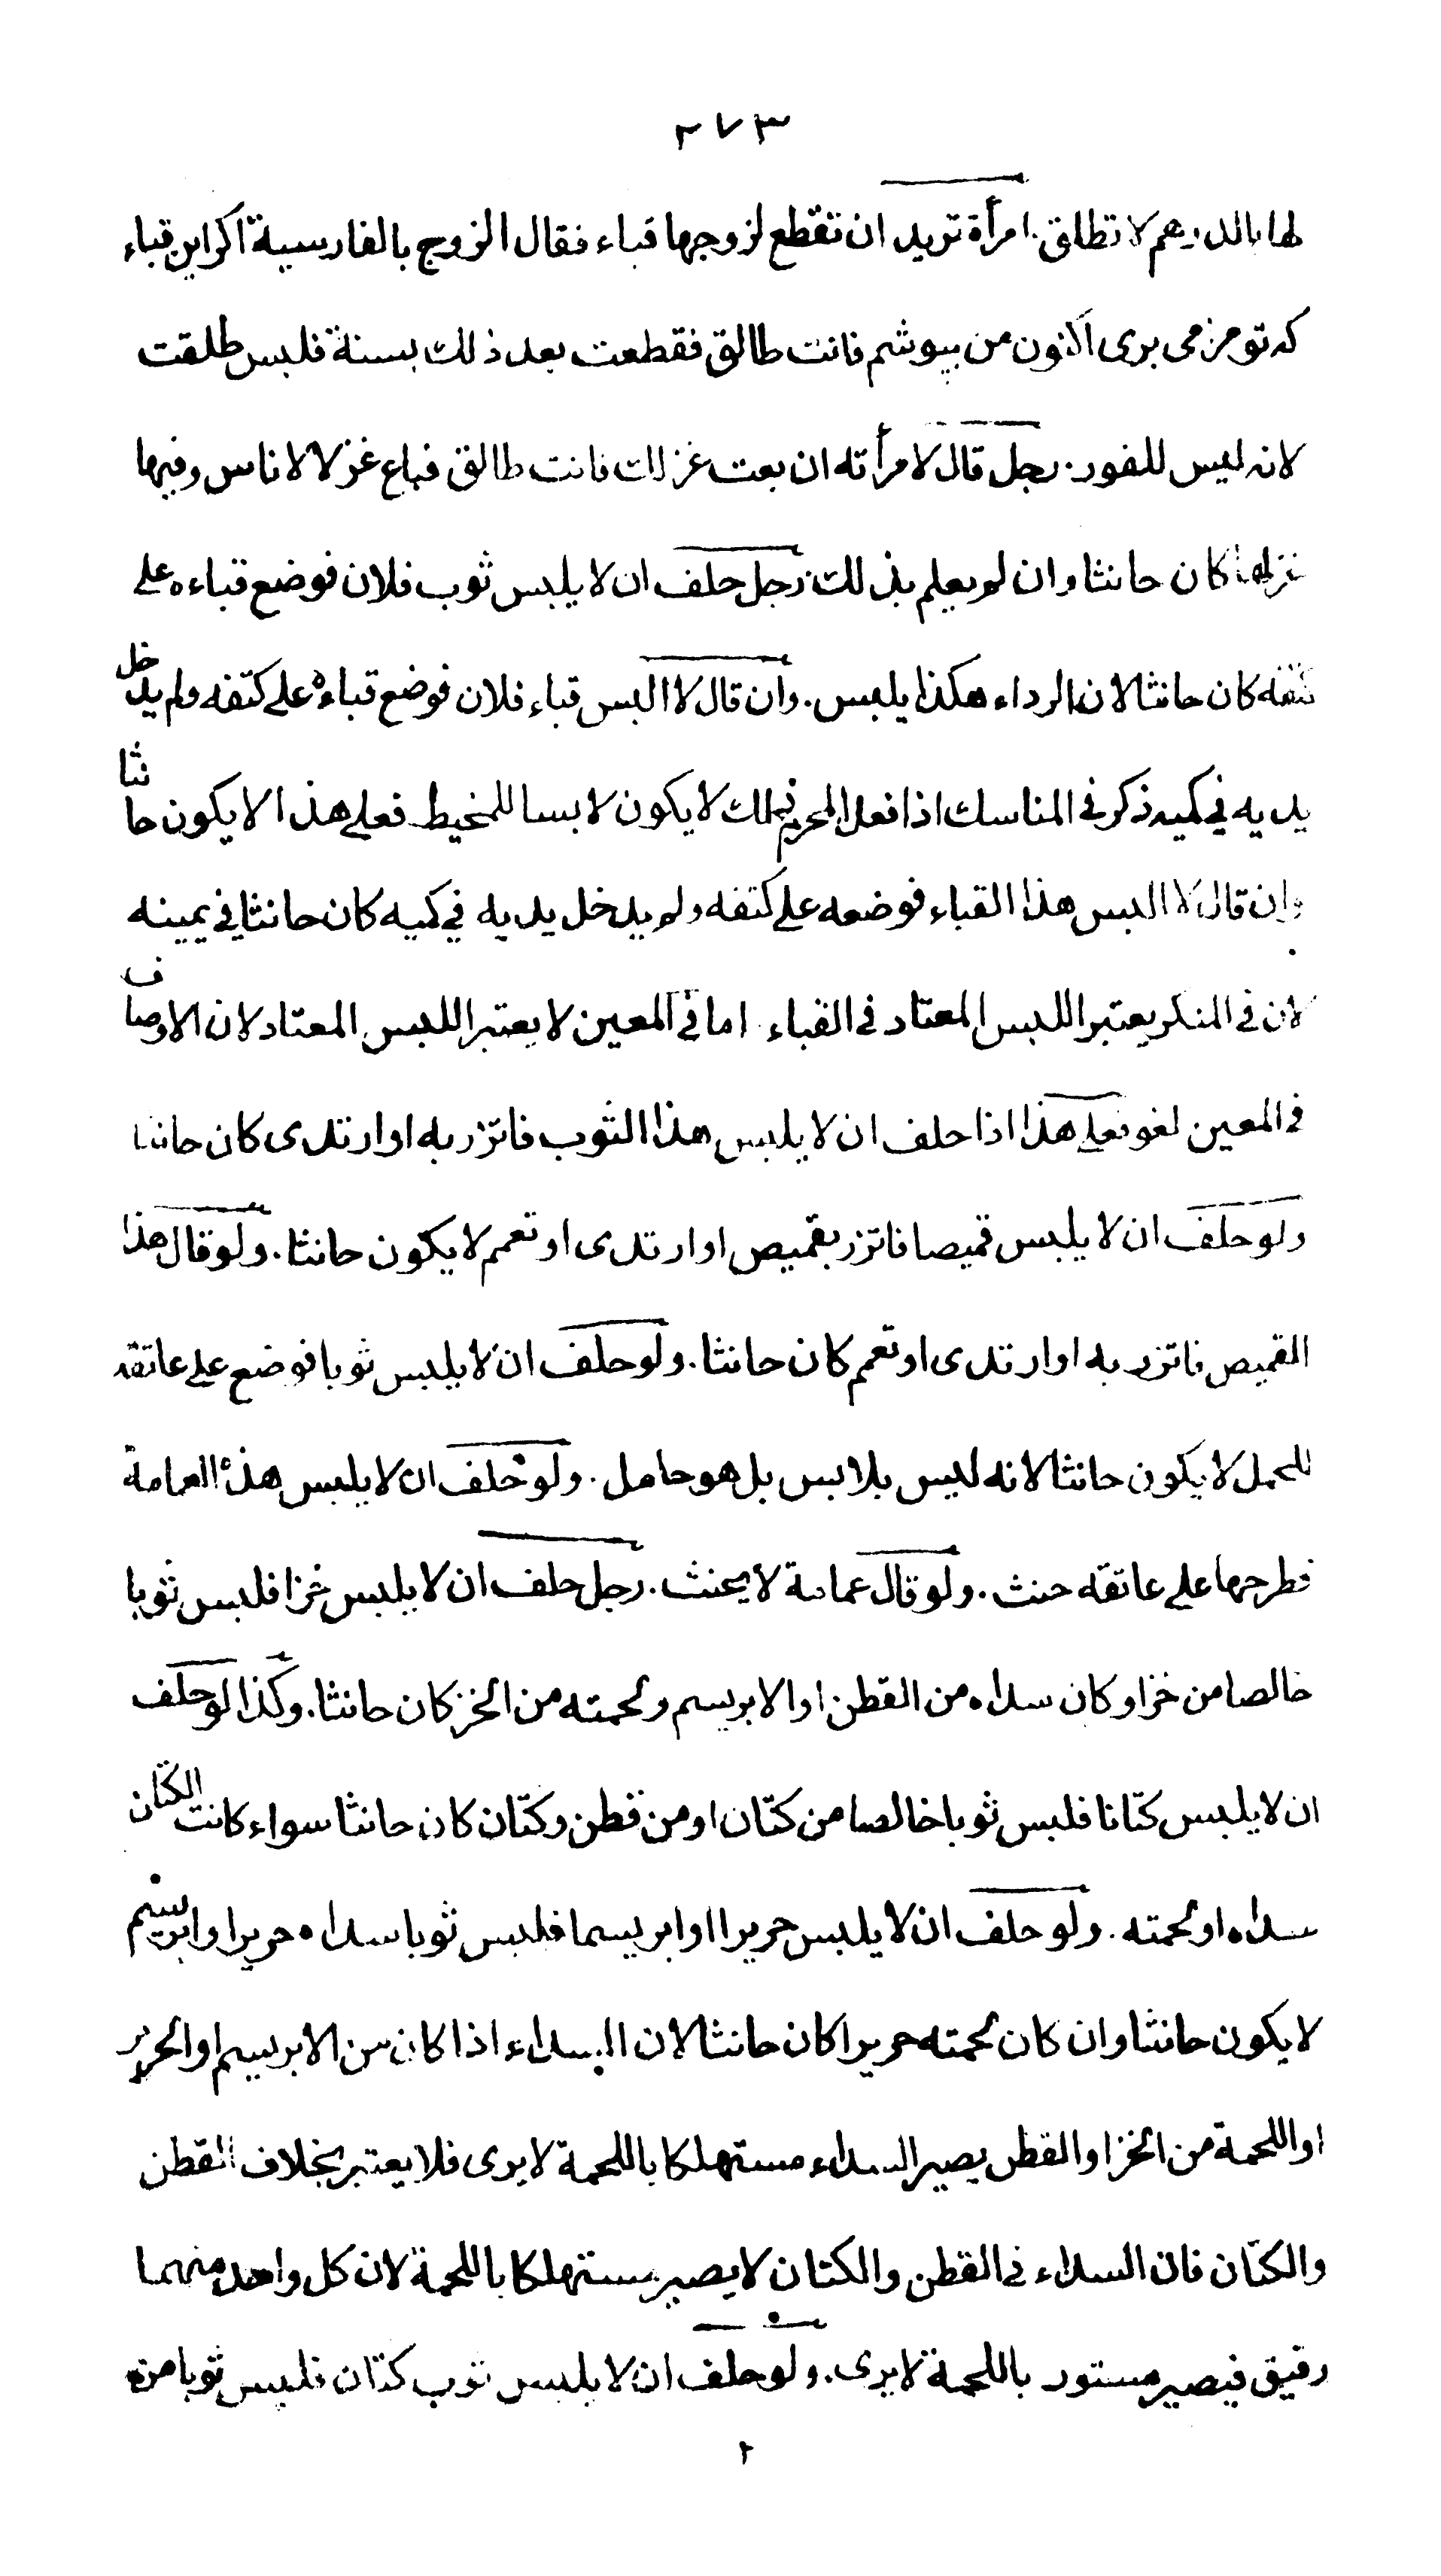 ٢٧٣
لها بالدرهم لا تطلق. امرأة تريد ان تقطع لزوجها قباء فقال الزوج بالفارسية اگر اين قباء
كه تو مزمى برى اكنون من بپوشم فانت طالق فقطعت بعد ذلك بسنة فلبس طلقت
لانه ليس للفور. رجل قال لامرأته ان بعت غزلك فانت طالق فباع غزلا لاناس وفيها
غزلها كان حانثا وان لم يعلم بذلك. رجل حلف ان لا يلبس ثوب فلان فوضع قباءه على
كتفه كان حانثا لان الرداء هكذا يلبس. وان قال لا البس قباء فلان فوضع قباءه على كتفه ولم يدخل
يديه في كميه ذكر في المناسك اذا فعل المحرم ذلك لا يكون لابسا للمخيط فعلى هذا لا يكون حانثا
وان قال لا البس هذا القباء فوضعه على كتفه ولم يدخل يديه في كميه كان حانثا في يمينه
لان في المنكر يعتبر اللبس المعتاد في القباء اما في المعين لا يعتبر اللبس المعتاد لان الاوصاف
في المعين لغو فعلى هذا اذا حلف ان لا يلبس هذا الثوب فاتزر به او ارتدى كان حانثا
ولو حلف ان لا يلبس قميصا فاتزر بقميص او ارتدى او تعمم لا يكون حانثا. ولو قال هذا
القميص فاتزر به او ارتدى او تعمم كان حانثا. ولو حلف ان لا يلبس ثوبا فوضع على عاتقه
للحمل لا يكون حانثا لانه ليس بلابس بل هو حامل. ولو حلف ان لا يلبس هذه العمامة
فطرحها على عاتقه حنث. ولو قال عمامة لا يحنث. رجل حلف ان لا يلبس خزا فلبس ثوبا
خالصا من خز او كان سداه من القطن او الابريسم ولحمته من الخز كان حانثا. وكذا لو حلف
ان لا يلبس كتّانا فلبس ثوبا خالصا من كتّان او من قطن وكتّان كان حانثا سواء كانت الكتّان
سداه او لحمته. ولو حلف ان لا يلبس حريرا او ابريسما فلبس ثوبا سداه حرير او ابريسم
لا يكون حانثا وان كان لحمته حريرا كان حانثا لان السداء اذا كان من الابريسم او الحرير
او اللحمة من الخز او القطن يصير السداء مستهلكا باللحمة لا يرى فلا يعتبر بخلاف القطن
والكتّان فان السداء في القطن والكتان لا يصير مستهلكا باللحمة لان كل واحد منهما
رقيق فيصير مستور باللحمة لا يرى. ولو حلف ان لا يلبس ثوب كتان فلبس ثوبا من
٢